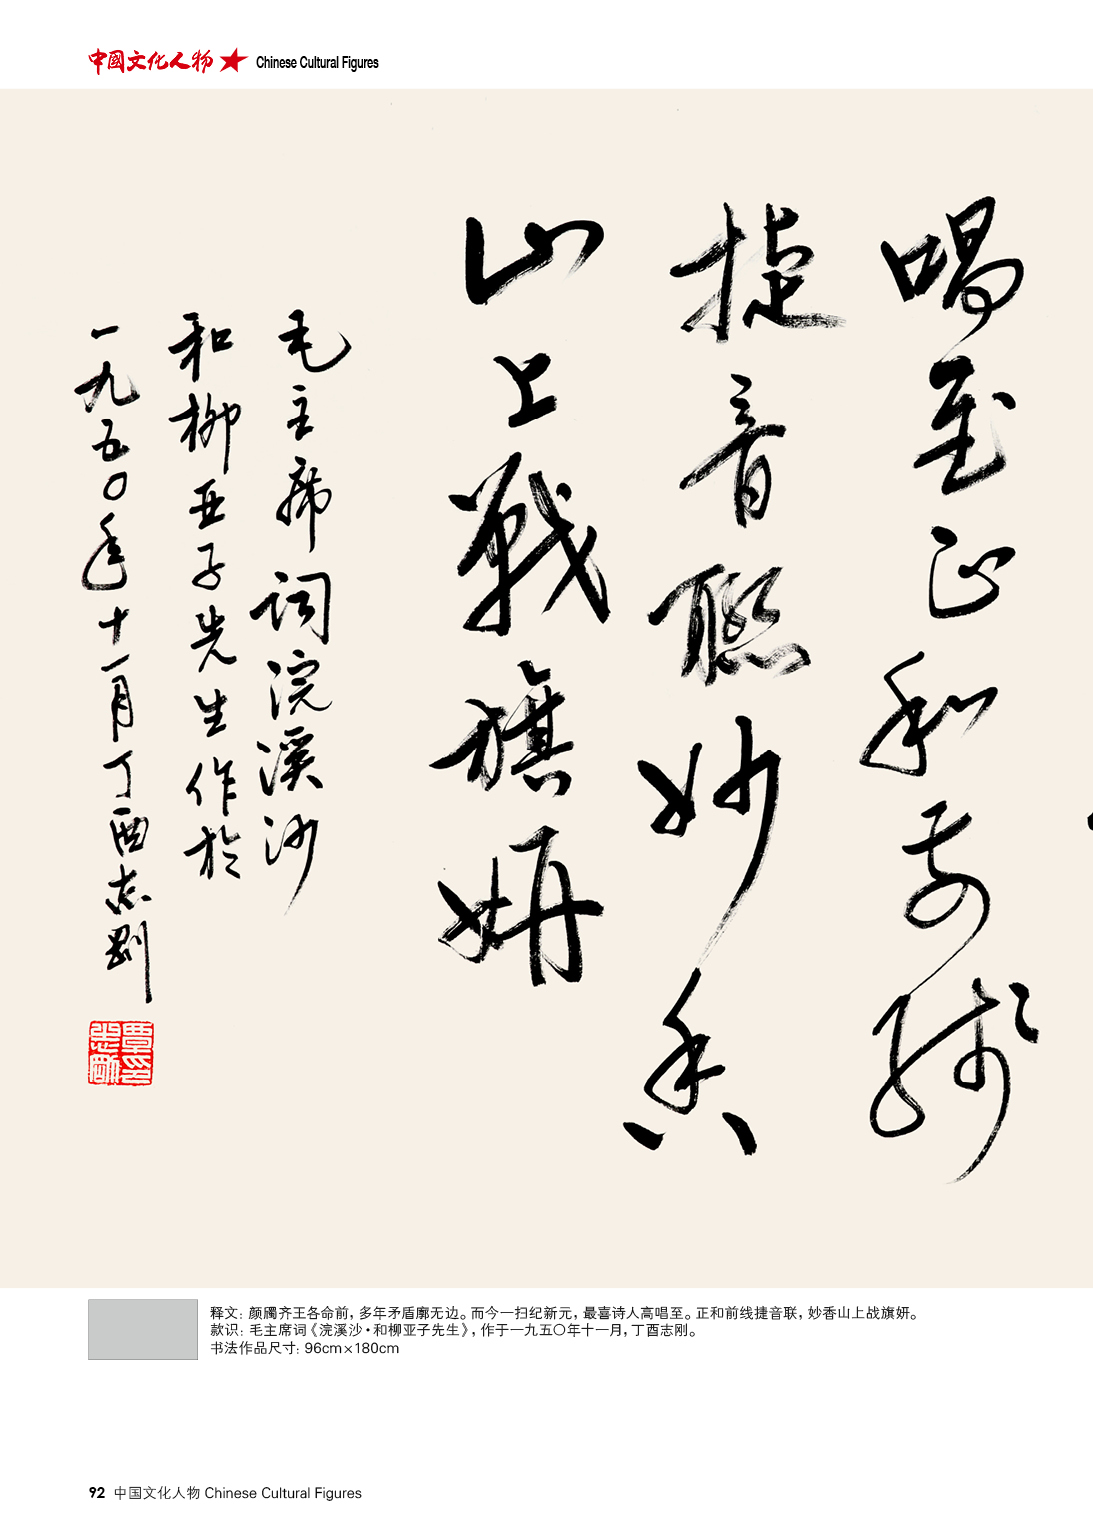 中國文化人物 Chinese Cultural Figures
唱至正和前线
捷音聯妙香
山上戰旗妍
毛主席词浣溪沙
和柳亚子先生作於
一九五〇年十一月丁酉志剛
覃印志剛
释文：颜斶齐王各命前，多年矛盾廓无边。而今一扫纪新元，最喜诗人高唱至。正和前线捷音联，妙香山上战旗妍。
款识：毛主席词《浣溪沙·和柳亚子先生》，作于一九五〇年十一月，丁酉志刚。
书法作品尺寸：96cm×180cm
92 中国文化人物 Chinese Cultural Figures